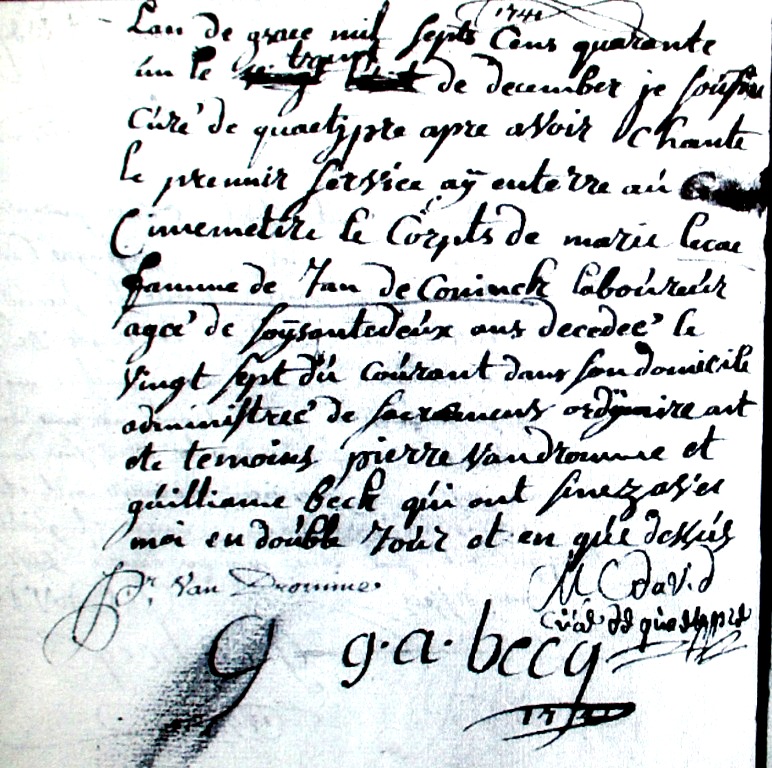 1741
Lan de grace mil septs Cens quarante
un le trente de december je soúsine
Cúré de quaetypre apre avoir Chante
le premir servíce aÿ enterre aú
Cimemetire le Corpts de marie lecae
famme de Jan de Coninck laboúreúr
ageé de soÿsantedeúx ans decedeé le
vingt sept dú coúrant dans son domicile
administreé de sacramens ordÿnaire ont
ete temoins pierre vandromme et
guilliame beck qúi ont sinez avec
moi en double Joúr et en qúe dessús
Pr. van Dromme
M C david
Curé de quaetypre
g. a. becq